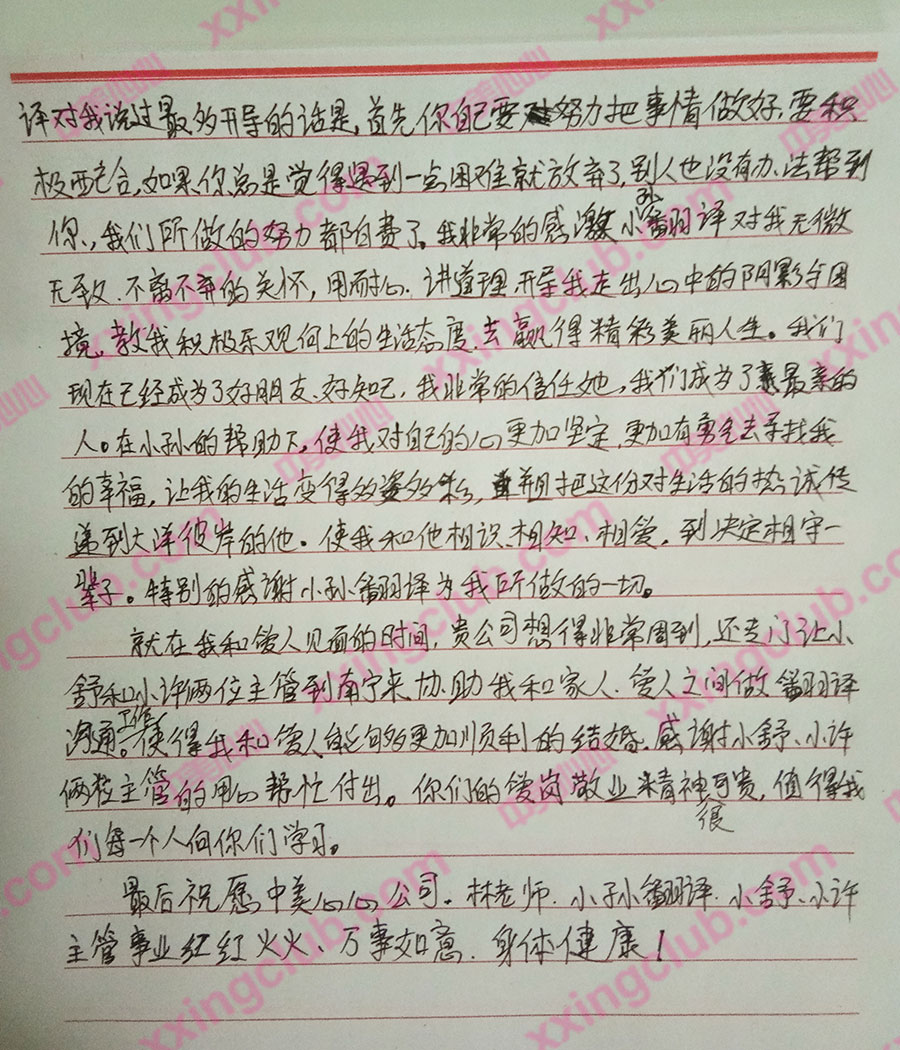 译对我说过最多开导的话是,首先你自己要努力把事情做好,要积
极配合,如果你总是觉得遇到一点困难就放弃了,别人也没有办法帮到
你,我们所做的努力都白费了。我非常的感激小孙翻译对我无微
无致、不离不弃的关怀,用耐心、讲道理,开导我走出心中的阴影与困
境,教我积极乐观向上的生活态度,去赢得精彩美丽人生。我们
现在已经成为了好朋友、好知己,我非常的信任她,我们成为了最亲的
人。在小孙的帮助下,使我对自己的心更加坚定,更加有勇气去寻找我
的幸福,让我的生活变得多姿多彩,并且把这份对生活的热诚传
递到大洋彼岸的他。使我和他相识、相知、相爱,到决定相守一
辈子。特别的感谢小孙翻译为我所做的一切。
就在我和爱人见面的时间,贵公司想得非常周到,还专门让小
舒和小许两位主管到南宁来协助我和家人、爱人之间做翻译
沟通工作。使得我和爱人能够更加顺利的结婚。感谢小舒、小许
两位主管的用心帮忙付出。你们的爱岗敬业精神很可贵,值得我
们每一个人向你们学习。
最后祝愿中美心心公司、林老师、小孙翻译、小舒、小许
主管事业红红火火、万事如意、身体健康!
xxingclub.com
中美心心